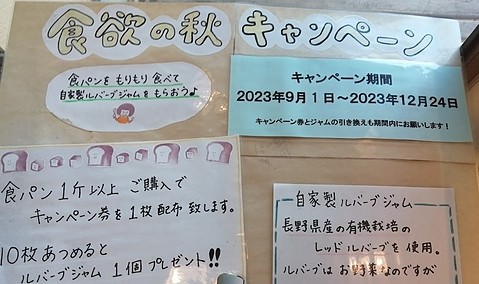 食欲の秋 キャンペーン
食パンをもりもり食べて
自家製ルバーブジャムをもらおうよ
キャンペーン期間
2023年9月1日～2023年12月24日
キャンペーン券とジャムの引き換えも期間内にお願いします！
食パン1ケ以上ご購入で
キャンペーン券を1枚配布致します。
10枚あつめると
ルバーブジャム1個プレゼント!!
自家製ルバーブジャム
長野県産の有機栽培の
レッドルバーブを使用。
ルバーブはお野菜なのですが